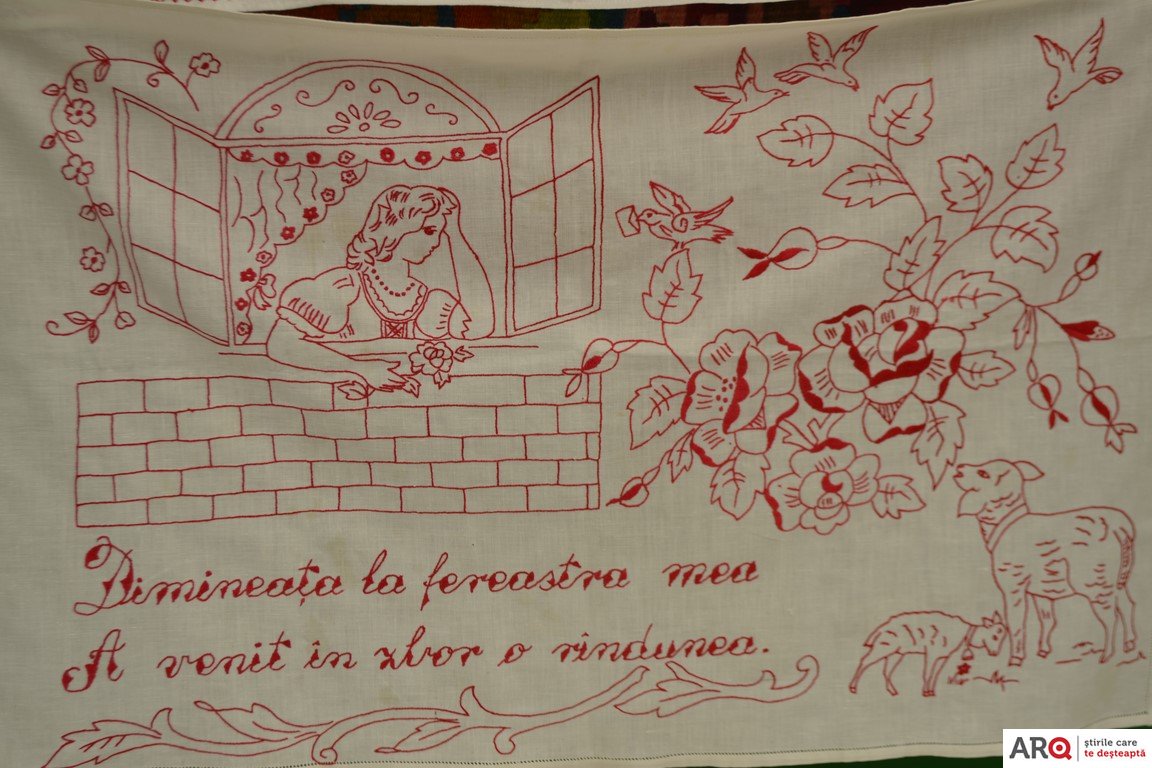 Dimineața la fereastra mea
A venit în zbor o rîndunea.
ARQ
știrile care
te deșteaptă